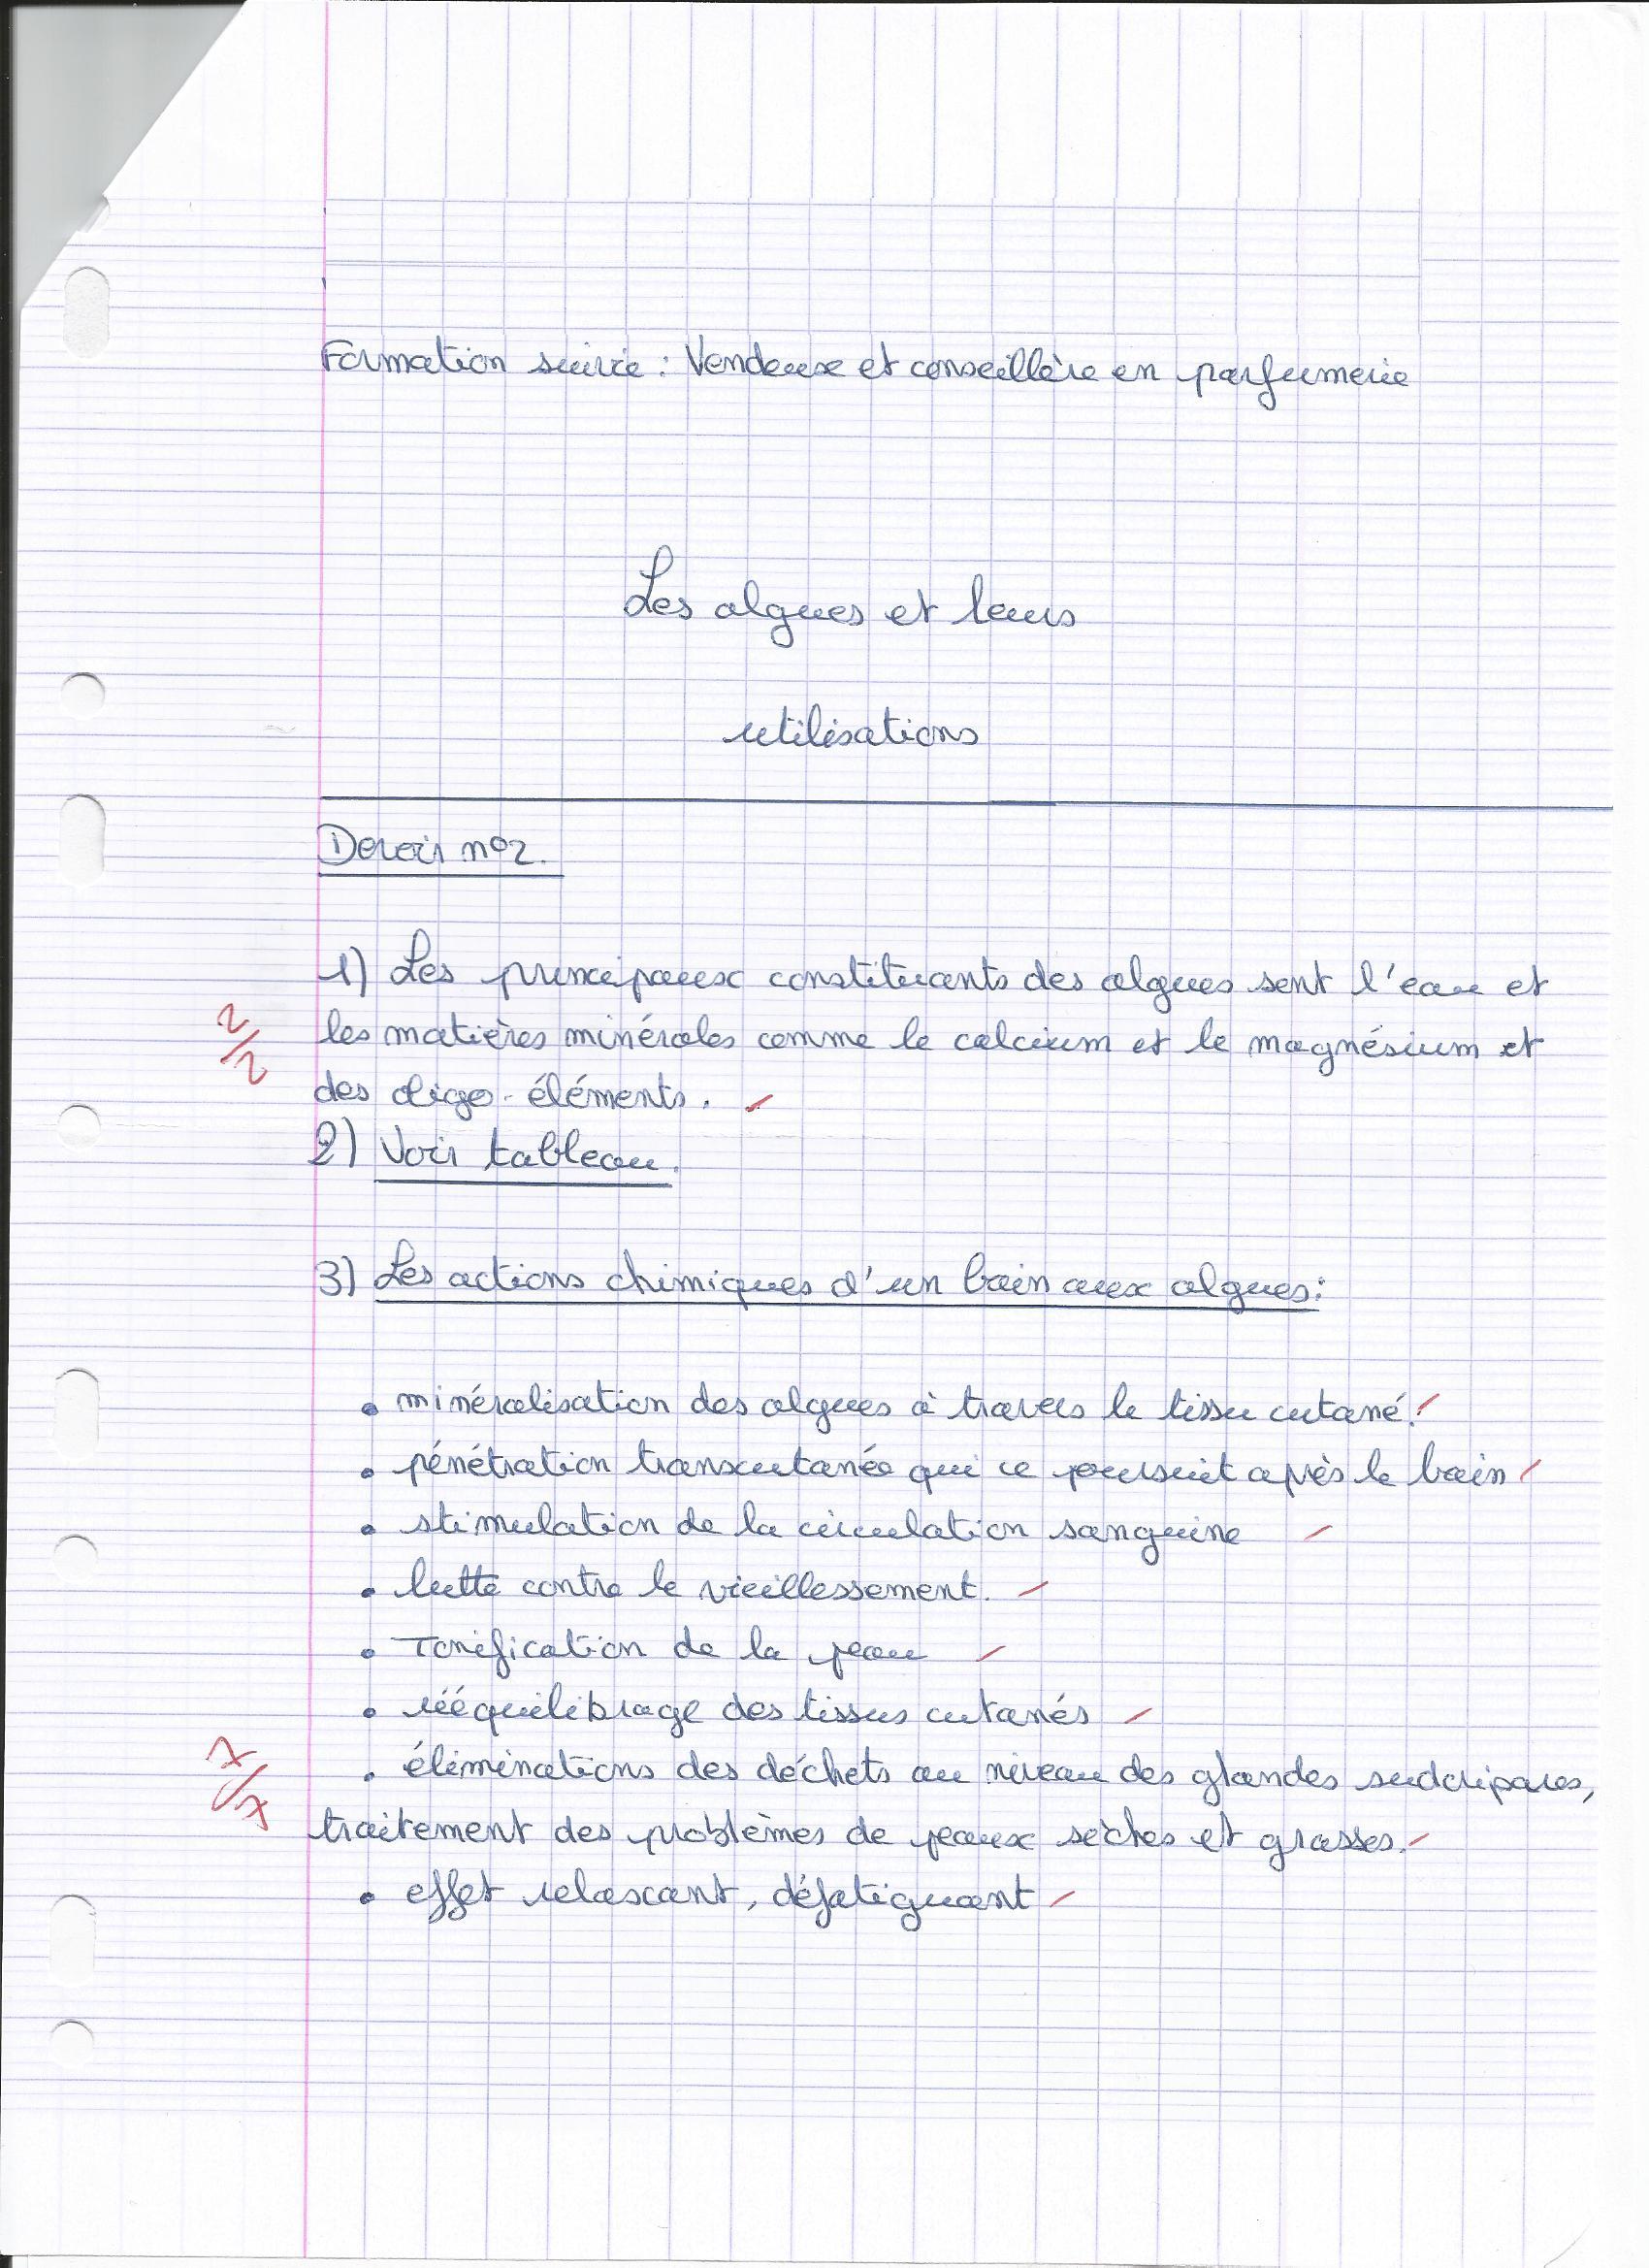 Formation suivie : Vendeuse et conseillère en parfumerie
Les algues et leurs
utilisations
Devoir n°2.
1) Les principaux constituants des algues sont l'eau et
2/2
les matières minérales comme le calcium et le magnésium et
des oligo-éléments.
2) Voir tableau.
3) Les actions chimiques d'un bain aux algues :
• minéralisation des algues à travers le tissu cutané.
• pénétration transcutanée qui ce poursuit après le bain
• stimulation de la circulation sanguine
• lutte contre le vieillessement.
• Tonification de la peau
• rééquilibrage des tissus cutanés
• éliminations des déchets au niveau des glandes sudoripares,
7/7
traitement des problèmes de peaux sèches et grasses.
• effet relaxant, défatiguant